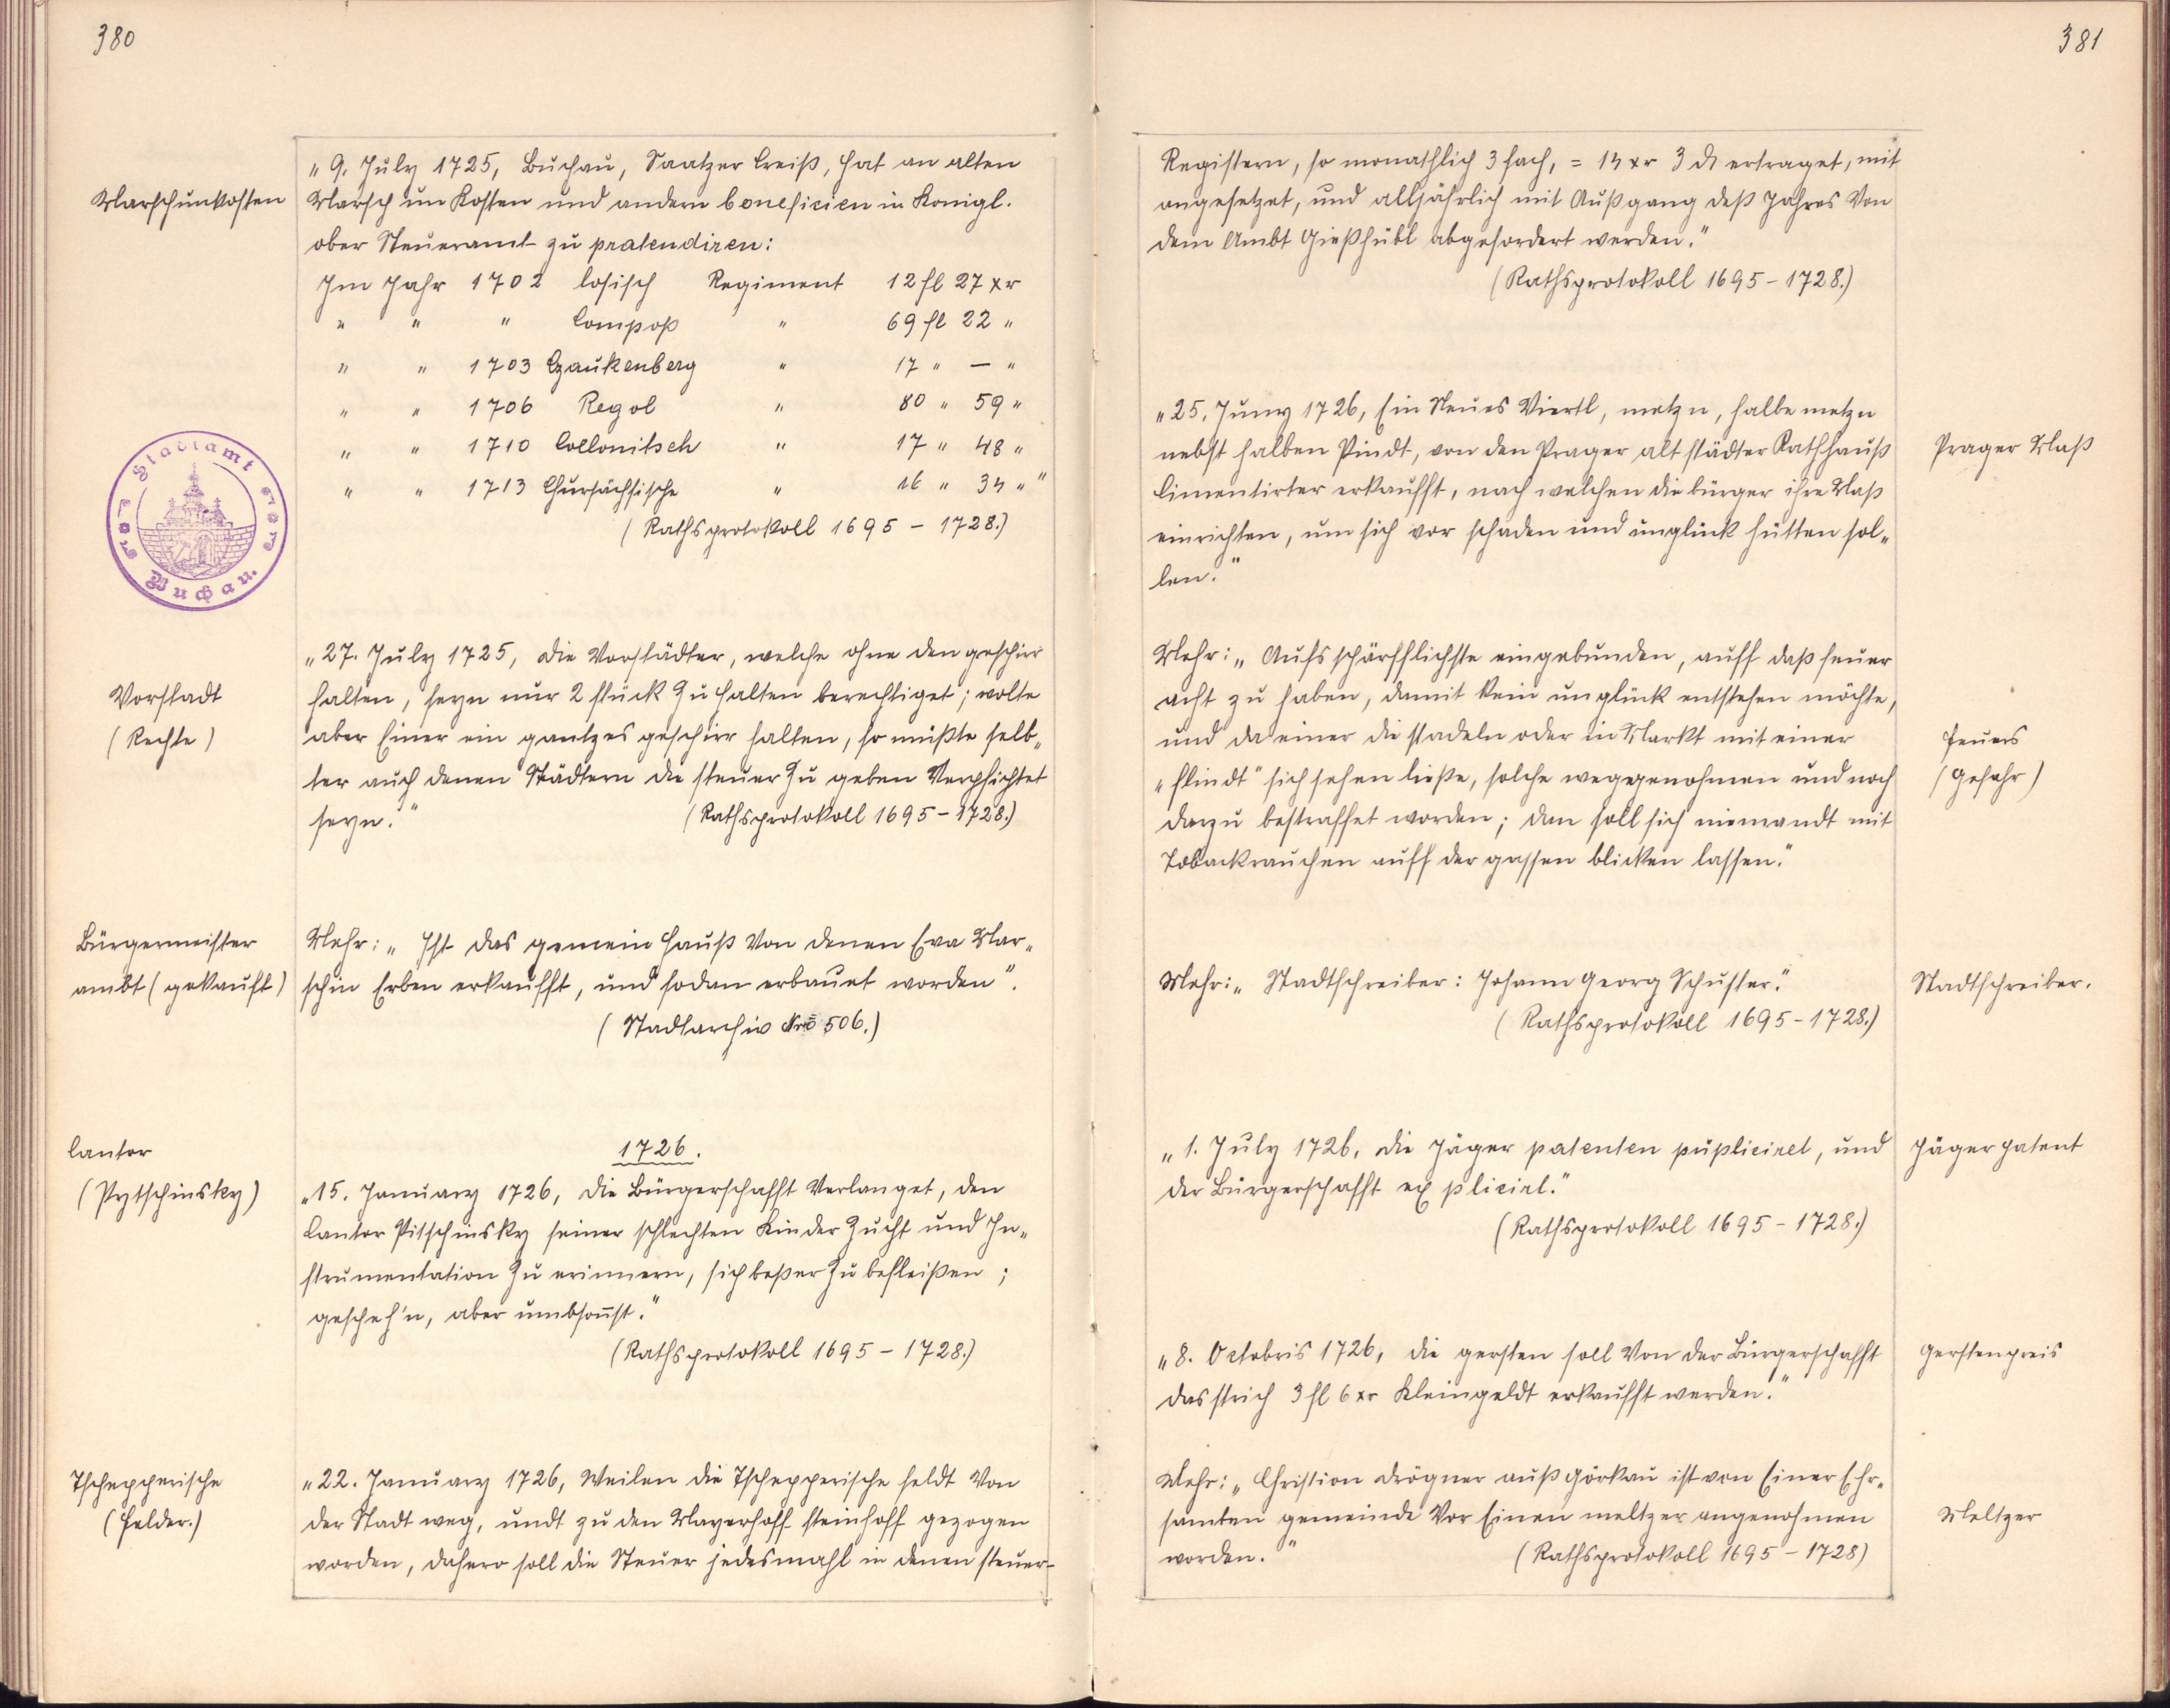 380
Marschunkosten
„9. July 1725, Buchau, Saatzer Creiß, hat an alten
Marsch un Kosten und andern beneficien in Königl.
ober Steueramt zu pratendiren:
Im Jahr 1702 losisch Regiment 12 fl 27 xr
" " " Compoß " 69 fl 22 "
" " 1703 Czaukenberg " 17 " — "
" " 1706 Regol " 80 " 59 "
" " 1710 Collonitsch " 17 " 48 "
" " 1713 Chursächsische " 16 " 34 " "
(Rathsprotokoll 1695 – 1728.)
Stadtamt
Buchau.
Vorstadt
(Rechte)
„27. July 1725, die Vorstädter, welche ohne den geschirr
halten, seyn nur 2 stück zu halten berechtiget; wolte
aber Einer ein gantzes geschirr halten, so müßte selb„
ter auch denen Städtern die steuer zu geben Verpfichtet
seyn."
(Rathsprotokoll 1695 – 1728.)
Bürgermeister
ambt (gekauft)
Mehr: „Ist das gemein Hauß Von denen Eva Mar„
schin Erben erkaufft, und sodan erbauet worden".
(Stadtarchiv Nro 506.)
1726.
Cantor
(Pytschinsky)
„15. January 1726, die Bürgerschafft Verlanget, den
Cantor Pitschinsky seiner schlechten Kinder Zucht und In„
strumentation zu erinnern, sich beßer zu befleißen;
gescheh'n, aber umbsonst."
(Rathsprotokoll 1695 – 1728.)
Tschepperische
(Felder.)
„22. January 1726, Weilen die Tschepperische feldt Von
der Stadt weg, undt zu den Mayerhoff steinhoff gezogen
worden, dahero soll die Steuer jedesmahl in denen steuer-
381
Registern, so monathlich 3 fach, = 14 xr 3 d ertraget, mit
angesetzet, und alljährlich mit Außgang deß Jahres Von
dem Ambt Gießhübl abgefordert werden."
(Rathsprotokoll 1695 – 1728.)
Prager Maß
„25. Juny 1726, Ein Neues Viertl, metzn, halbe metzn
nebst halben Pindt, von den Prager alt städter Rathhauß
Cimentirter erkaufft, nach welchen die bürger ihre Maß
einrichten, um sich vor schaden und unglück hütten sol„
len."
Mehr: „Aufs schärfflichste eingebunden, auff daß feuer
acht zu haben, damit kein unglück entstehen möchte,
und da einer die stadeln oder in Markt mit einer
„flindt" sich sehen ließe, solche weggenohmen und noch
darzu bestraffet worden; dan soll sich niemandt mit
Tobackrauchen auff der gassen blicken lassen."
Feuers
(Gefahr)
Mehr: „Stadtschreiber: Johann Georg Schuster."
(Rathsprotokoll 1695 – 1728.)
Stadtschreiber.
„1. July 1726, die Jäger patenten pupliciret, und
der Bürgerschafft ex plicirt."
(Rathsprotokoll 1695 – 1728.)
Jägerpatent
„8. Octobris 1726, die gersten soll Von der Bürgerschafft
das strich 3 fl 6 xr Kleingeldt erkaufft werden."
Gerstenpreis
Mehr: „Christion Drögner auß Görkau ist von Einer Ehr„
samben gemeinde Vor Einen meltzer angenohmen
worden."
(Rathsprotokoll 1695 – 1728)
Meltzer